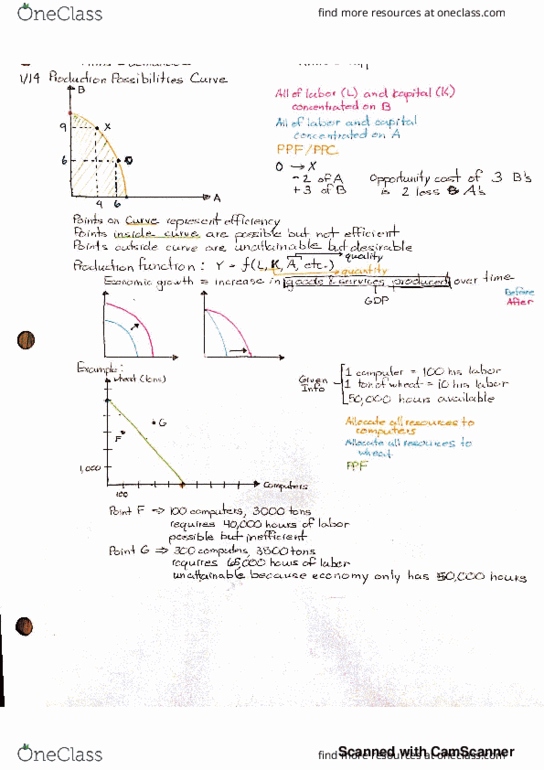 OneClass
find more resources at oneclass.com
1/19 Production Possibilities Curve
B
All of labor (L) and kapital (K)
concentrated on B
All of labor and capital
concentrated on A
PPF/PPC
9
X
6
4 6
A
O → X
- 2 of A
+ 3 of B
Opportunity cost of 3 B's
is 2 less A's
Points on curve represent efficiency
Points inside curve are possible but not efficient
Points outside curve are unattainable but desirable
Production Function: Y = f(L, K, A, etc.)
quality
quantity
Economic growth = increase in goods & services produced over time
GDP
Before
After
Example:
wheat (tons)
G
F
1,000
100
computers
Given
Info
1 computer = 100 hrs labor
1 ton of wheat = 10 hrs labor
50,000 hours available
Allocate all resources to
computers
Allocate all resources to
wheat
PPF
Point F ⇒ 100 computers, 3000 tons
requires 40,000 hours of labor
possible but inefficient
Point G ⇒ 300 computers, 3500 tons
requires 65,000 hours of labor
unattainable because economy only has 50,000 hours
OneClass
find more resources at oneclass.com
Scanned with CamScanner